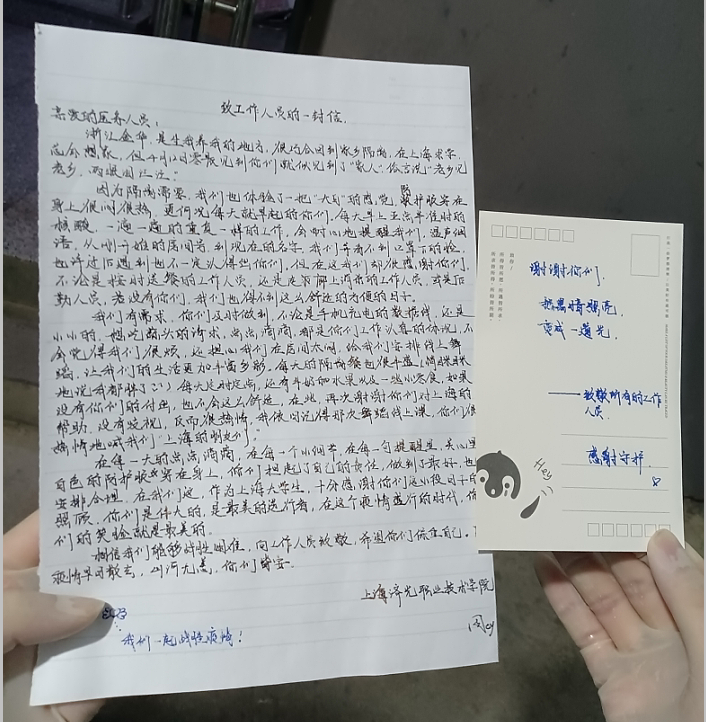 致工作人员的一封信.
亲爱的医务人员:
浙江金华,是生我养我的地方,很巧会回到家乡隔离,在上海求学,
总会想家,但4月12日零散见到你们就似见到了"家人",俗言说"老乡见
老乡,两眼泪汪汪."
因为隔离需要,我们也体验了一把"大白"的感觉,防护服穿在
身上很闷很热,更何况每天就早起的你们,每天早上五点半准时的
核酸,一遍一遍的重复一样的工作,会耐心地提醒我们,温声细
语,从刚开始的房间号到现在的名字,我们等看不到口罩下的脸
也许过后遇到也不一定认得出你们,但在这我们却很感谢你们,
不论是按时送餐的工作人员,还是足
勤人员,若没有你们,我们也得不到这么舒适的方便的日子.
我们有需求,你们及时做到,不论是手机充电的数据线,还是
小小的,想吃罐头的请求,点点滴滴,都是你们工作认真的体现,不
会觉得我们很烦,还担心我们在房间太闷,给我们安排线上舞
蹈,让我们的生活更加丰富多彩,每天的隔离餐也很丰盛(偷偷
地说我都胖了:)) 每天定时定点,还有牛奶和水果以及一些小零食,如果
没有你们的付出,也不会这么舒适,在此,再次谢谢你们对上海的
帮助,没有歧视,反而很热情,我依旧记得那次舞蹈线上课,你们很
热情地喊我们"上海的朋友们".
在每一天的点点滴滴,在每一个小细节,在每一句提醒里,关心里
白色的防护服穿在身上,你们担起了自己的责任,做到了最好,也
安排合理,在我们这,作为上海大学生,十分感谢你们这小段日子的
照顾,你们是伟大的,是最美的逆行者,在这个疫情盛行的时代,你
们的笑脸就是最美的.
相信我们能够战胜困难,向工作人员致敬,希望你们保重自己.
疫情早日散去,山河无恙,你们皆安.
上海济光职业技术学院
我们一起战胜疫情!
谢谢你们.
把热情照亮
变成一道光
——致敬所有的工作
人员.
感谢守护
Hey
:)